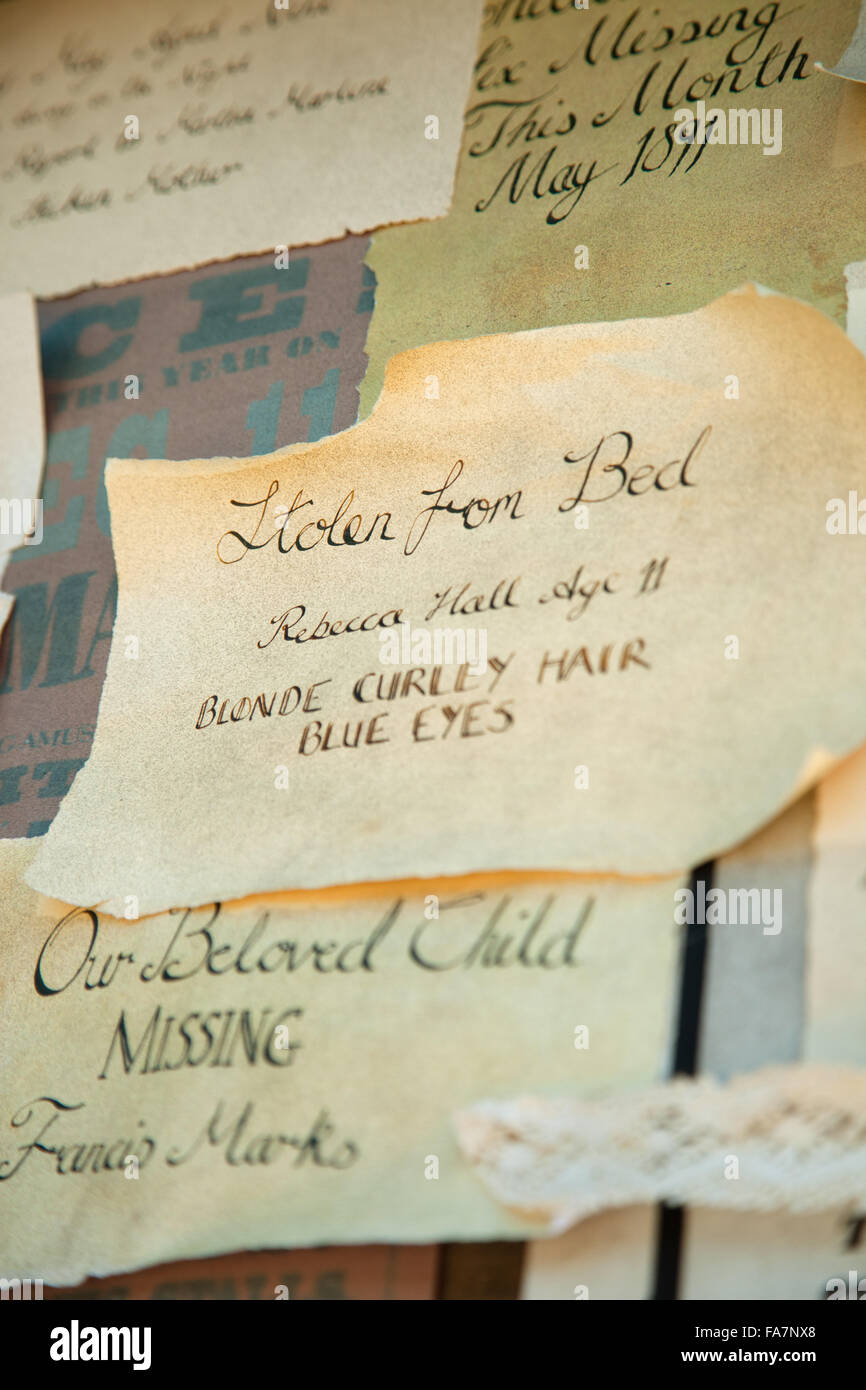 May April
in the Night
Six Missing
This Month
May 1891
CE
THIS YEAR ON
11
MA
Stolen from Bed
Rebecca Hall Age 11
BLONDE CURLEY HAIR
BLUE EYES
Our Beloved Child
MISSING
Francis Marks
STALLS
alamy
Image ID: FA7NX8
www.alamy.com